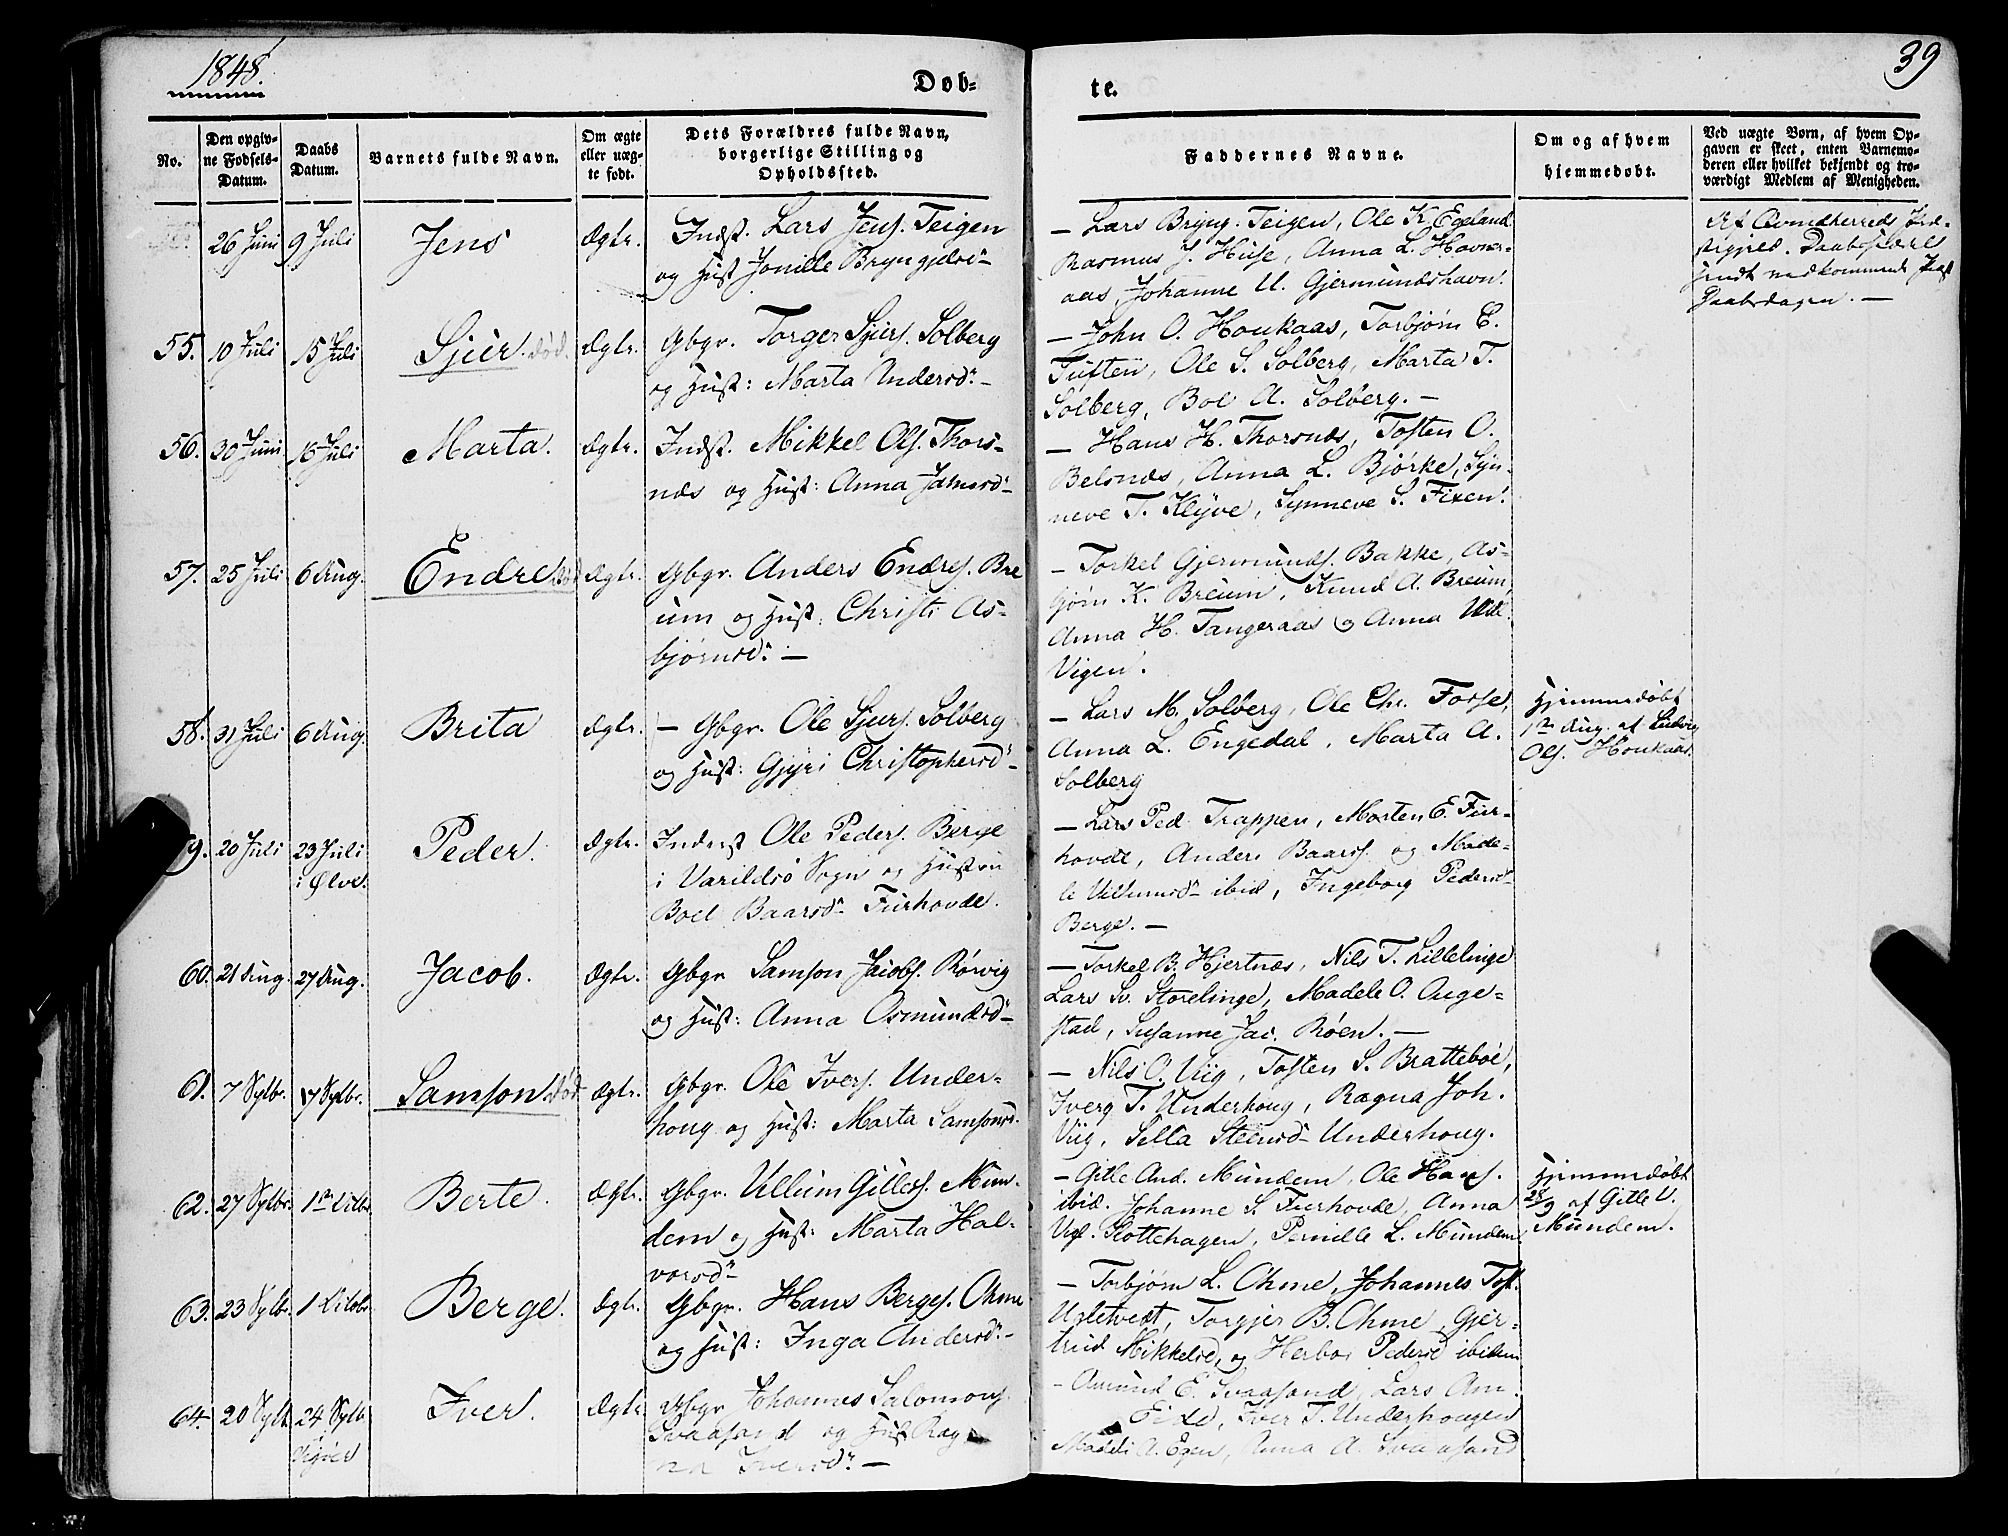 1848.
Døb-
te.
39
No.
Den opgiv-
ne Fødsels-
Datum.
Daabs
Datum.
Barnets fulde Navn.
Om ægte
eller uæg-
te født.
Dets Forældres fulde Navn,
borgerlige Stilling og
Opholdssted.
Faddernes Navne.
Om og af hvem
hjemmedøbt.
Ved uægte Børn, af hvem Op-
gaven er skeet, enten Barnemo-
deren eller hvilket bekjendt og tro-
værdigt Medlem af Menigheden.
26 Juni
9 Juli
Jens
Ægte.
Indst. Lars Jens. Teigen
og Hust Jonille Bryngjelsd
– Lars Bryng. Teigen, Ole K. Egeland
Rasmus J. Huse, Anna L. Havner-
aas, Johanne U. Gjermundshavn.
Af Qvindherreds Præ-
stegjeld. Daabs
sendt vedkommende Præst
Daabsdagen. –
55.
10 Juli
15 Juli
Sjur død.
Ægte.
Gbgr. Torger Sjurs. Solberg
og Hust: Marta Andersd. –
– John O. Houkaas, Torbjørn E.
Tuften, Ole S. Solberg, Marta T.
Solberg, Boel A. Solberg. –
56.
30 Juni
16 Juli
Marta.
Ægte.
Indst. Mikkel Ols. Thors-
næs og Hust: Anna Jensd –
– Hans H. Thorsnæs, Tosten O.
Belsnæs, Anna L. Bjørke, Syn-
neve T. Klyve, Synneve S. Fixen.
57.
25 Juli
6 Aug.
Endre død
Ægte.
Gbgr. Anders Endres. Bre
um og Hust: Christi As-
bjørnsd. –
– Torkel Gjermunds. Bakke, As-
bjørn K. Breum, Knud A. Breum,
Anna H. Tangeraas og Anna
Vigen.
58.
31 Juli
6 Aug.
Brita
Ægte.
– Gbgr. Ole Sjurs. Solberg
og Hust: Gjyri Christophersd –
– Lars M. Solberg, Ole Chr. Fosse,
Anna L. Engedal, Marta A.
Solberg
Hjemmedøbt
1ste Aug. af Ludvig
Ols. Houkaas.
59.
20 Juli
23 Juli
i Ølve.
Peder.
Ægte.
Inderst Ole Peders. Berge
i Varildsø Sogn og Hustru
Boel Baarsd Furhovde.
– Lars Ped. Trappen, Morten E. Fur-
hovde, Anders Baards. og Made-
le Villumsd ibid, Ingeborg Pedersd
Berge. –
60.
21 Aug.
27 Aug.
Jacob.
Ægte.
Gbgr Samson Jacobs. Rørvig
og Hust: Anna Osmundsd –
– Torkel B. Hjertnæs, Nils T. Lillelinge
Lars Sv. Storelinge, Madele O. Auge-
stad, Susanne Jac. Røen. –
61.
7 Sptbr.
17 Sptbr.
Samson død
Ægte.
Gbgr. Ole Ivers. Under-
houg og Hust: Marta Samsonsd.
– Nils O. Viig, Tosten S. Brattebøe,
Iverg T. Underhoug, Ragna Joh.
Viig, Sella Steensd Underhoug.
62.
27 Sptbr.
1ste Octbr.
Berte.
Ægte.
Gbgr. Villum Gitles. Mun-
dem og Hust: Marta Hal-
vorsd –
– Gitle And. Mundem, Ole Hans.
ibid. Johanne S. Furhovde, Anna
Slottehagen, Pernille L. Mundem
Hjemmedøbt
28/9 af Gitle V.
Mundem.
63.
23 Sptbr.
1 Octobr
Berge.
Ægte.
Gbgr. Hans Berges. Ohme
og Hust: Inga Andersd. –
– Torbjørn L. Ohme, Johannes Tost.
Ugletvedt, Torgjer B. Ohme, Gjer-
trud Mikkelsd, og Herbor Pedersd ibidem
64.
20 Sptb
24 Sptb
Iver.
Ægte
Gbgr Johannes Salomons.
Svaasand og Hust Rag
na Iversd. –
– Amund E. Svaasand, Lars Am.
Eide, Iver T. Underhougen
Madeli A. Egen, Anna A. Svaasand